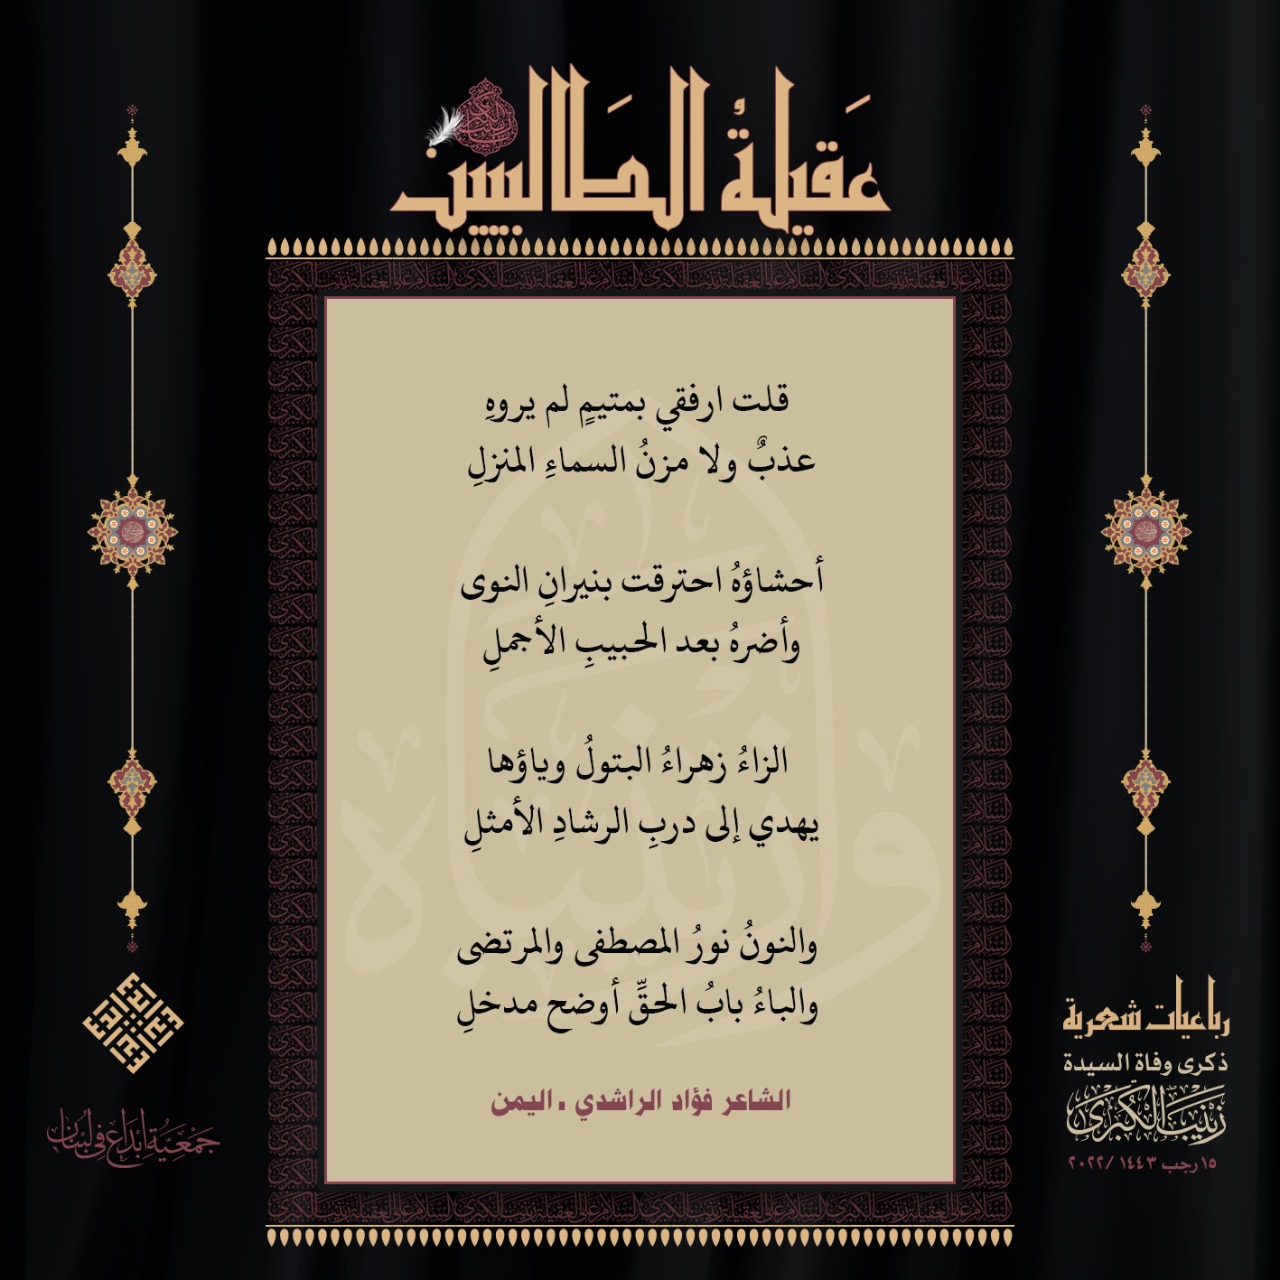 عَقيلةُ الطَالبيين
قلت ارفقي بمتيمٍ لم يروهِ
عذبٌ ولا مزنُ السماءِ المنزلِ
أحشاؤهُ احترقت بنيرانِ النوى
وأضرهُ بعد الحبيبِ الأجملِ
الزاءُ زهراءُ البتولُ وياؤها
يهدي إلى دربِ الرشادِ الأمثلِ
والنونُ نورُ المصطفى والمرتضى
والباءُ بابُ الحقِّ أوضح مدخلِ
الشاعر فؤاد الراشدي . اليمن
رباعيات شعرية
ذكرى وفاة السيدة
زَيْنَبَ الكُبْرَىٰ
١٥ رجب ١٤٤٣ /٢٠٢٢
جَمْعِيَّةُ إِبْدَاع فِي لُبْنَان
وا زينباه